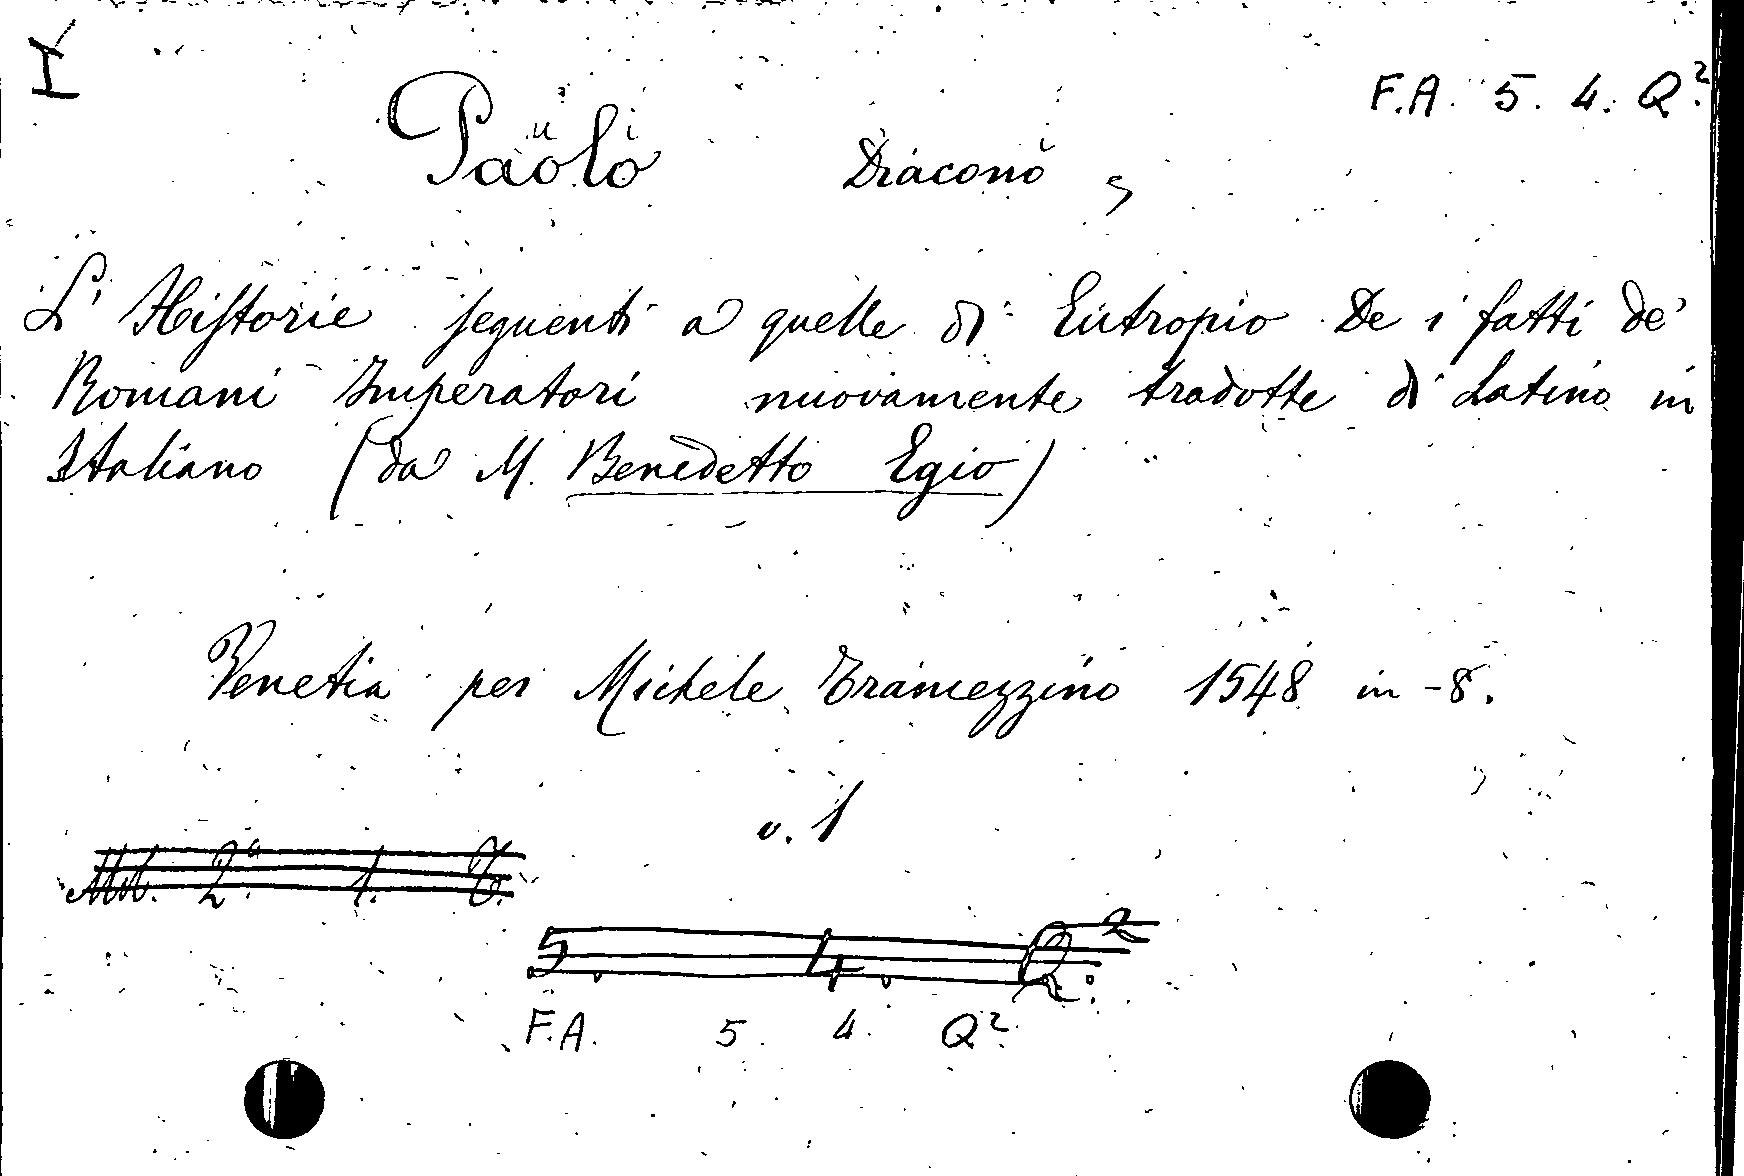 I
F.A. 5. 4. Q².
Paolo Diacono,
L' Historie seguenti a quelle di Eutropio De i fatti de'
Romani Imperatori nuovamente tradotte di Latino in
Italiano (da M. Benedetto Egio)
Venetia per Michele Tramezzino 1548 in-8.
v. 1
2ª. 1.
5. 4. Q².
F.A. 5. 4. Q².